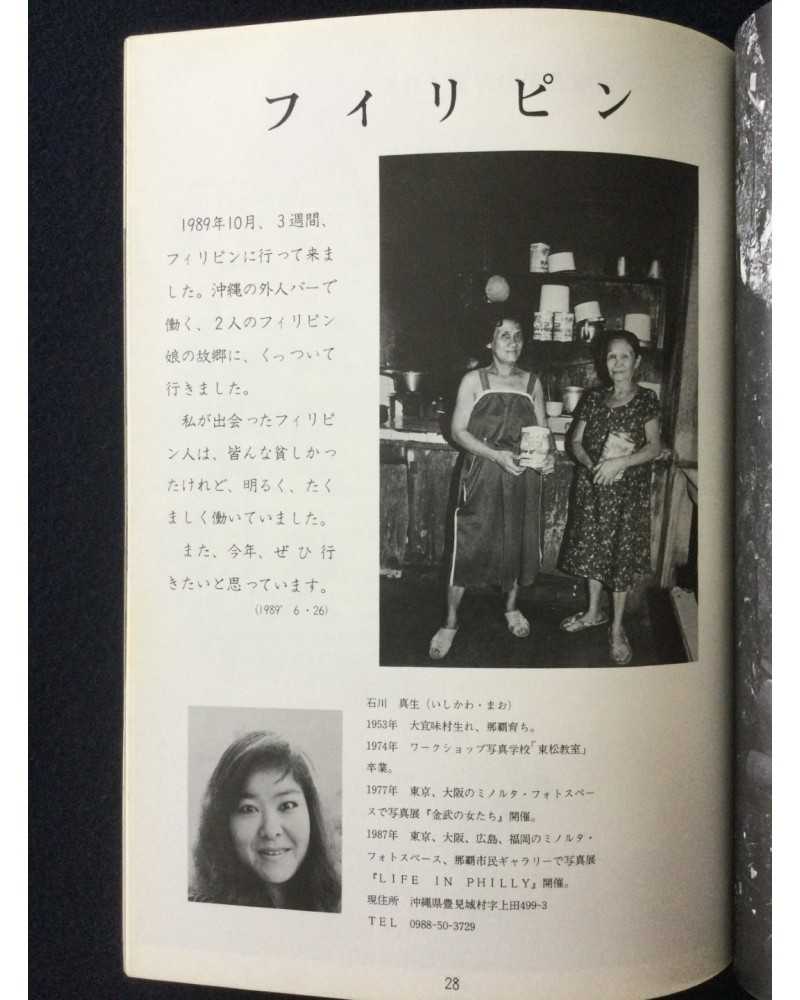 フィリピン
1989年10月、3週間、
フィリピンに行って来ま
した。沖縄の外人バーで
働く、2人のフィリピン
娘の故郷に、くっついて
行きました。
私が出会ったフィリピ
ン人は、皆んな貧しかっ
たけれど、明るく、たく
ましく働いていました。
また、今年、ぜひ行
きたいと思っています。
(1989' 6・26)
石川 真生(いしかわ・まお)
1953年 大宜味村生れ、那覇育ち。
1974年 ワークショップ写真学校「東松教室」
卒業。
1977年 東京、大阪のミノルタ・フォトスペー
スで写真展『金武の女たち』開催。
1987年 東京、大阪、広島、福岡のミノルタ・
フォトスペース、那覇市民ギャラリーで写真展
『LIFE IN PHILLY』開催。
現住所 沖縄県豊見城村字上田499-3
TEL 0988-50-3729
28